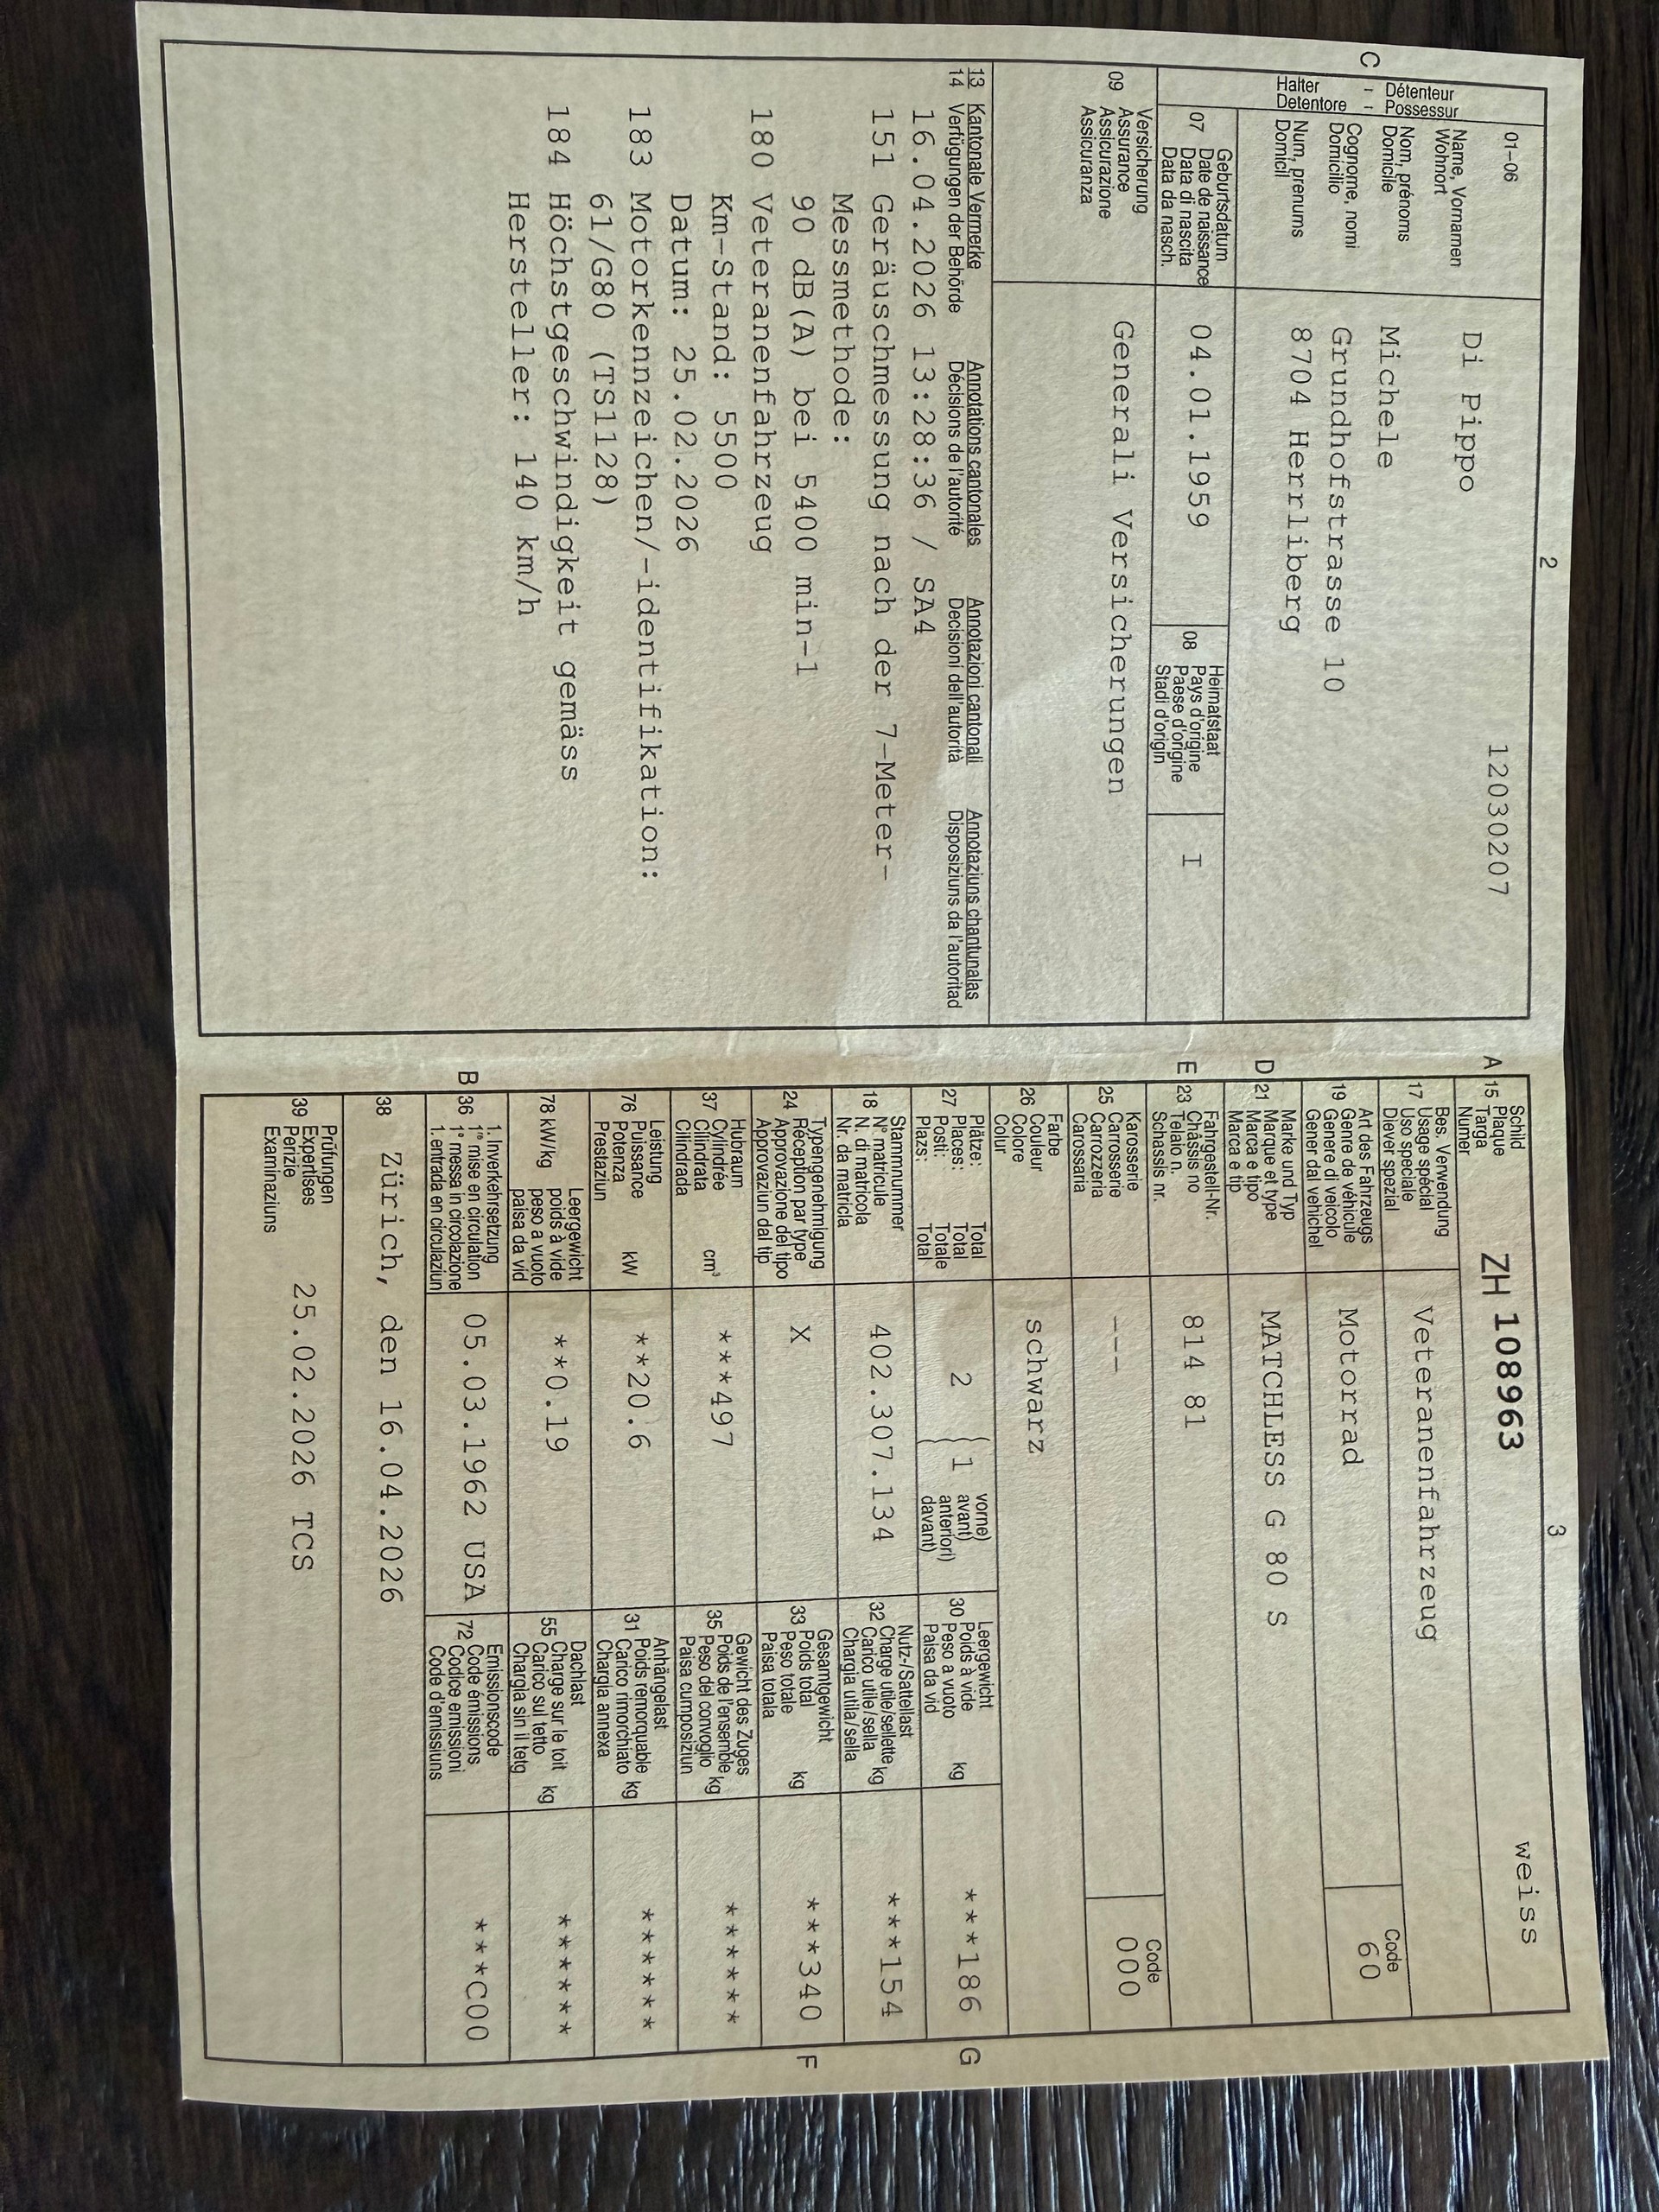 2
01-06
12030207
C
Halter - Détenteur
Detentore - Possessur
Name, Vornamen
Wohnort
Nom, prénoms
Domicile
Cognome, nomi
Domicilio
Num, prenums
Domicil
Di Pippo
Michele
Grundhofstrasse 10
8704 Herrliberg
07
Geburtsdatum
Date de naissance
Data di nascita
Data da nasch.
04.01.1959
08
Heimatstaat
Pays d'origine
Paese d'origine
Stadi d'origin
I
09
Versicherung
Assurance
Assicurazione
Assicuranza
Generali Versicherungen
13 Kantonale Vermerke Annotations cantonales Annotazioni cantonali Annotaziuns chantunalas
14 Verfügungen der Behörde Décisions de l'autorité Decisioni dell'autorità Disposiziuns da l'autoritad
16.04.2026 13:28:36 / SA4
151 Geräuschmessung nach der 7-Meter-
Messmethode:
90 dB(A) bei 5400 min-1
180 Veteranenfahrzeug
Km-Stand: 5500
Datum: 25.02.2026
183 Motorkennzeichen/-identifikation:
61/G80 (TS1128)
184 Höchstgeschwindigkeit gemäss
Hersteller: 140 km/h
3
weiss
A 15
Schild
Plaque
Targa
Numer
ZH 108963
17
Bes. Verwendung
Usage spécial
Uso speciale
Diever spezial
Veteranenfahrzeug
19
Art des Fahrzeugs
Genre de véhicule
Genere di veicolo
Gener dal vehichel
Motorrad
Code
60
D 21
Marke und Typ
Marque et type
Marca e tipo
Marca e tip
MATCHLESS G 80 S
E 23
Fahrgestell-Nr.
Châssis no
Telaio n.
Schassis nr.
814 81
25
Karosserie
Carrosserie
Carrozzeria
Carossaria
---
Code
000
26
Farbe
Couleur
Colore
Colur
schwarz
27
Plätze: Total
Places: Total
Posti: Totale
Plazs: Total
2 ( 1 vorne)
avant)
anteriori)
davant)
30
Leergewicht
Poids à vide
Peso a vuoto
Paisa da vid
kg
***186
G
18
Stammnummer
N° matricule
N. di matricola
Nr. da matricla
402.307.134
32
Nutz-/Sattellast
Charge utile/sellette
Carico utile/sella
Chargia utila/sella
kg
***154
24
Typengenehmigung
Réception par type
Approvazione del tipo
Approvaziun dal tip
X
33
Gesamtgewicht
Poids total
Peso totale
Paisa totala
kg
***340
F
37
Hubraum
Cylindrée
Cilindrata
Cilindrada
cm³
***497
35
Gewicht des Zuges
Poids de l'ensemble
Peso del convoglio
Paisa cumposiziun
kg
*******
76
Leistung
Puissance
Potenza
Prestaziun
kW
**20.6
31
Anhängelast
Poids remorquable
Carico rimorchiato
Chargia annexa
kg
*******
78 kW/kg
Leergewicht
poids à vide
peso a vuoto
paisa da vid
**0.19
55
Dachlast
Charge sur le toit
Carico sul tetto
Chargia sin il tetg
kg
*******
B 36
1. Inverkehrsetzung
1re mise en circulation
1a messa in circolazione
1. entrada en circulaziun
05.03.1962 USA
72
Emissionscode
Code émissions
Codice emissioni
Code d'emissiuns
***C00
38
Zürich, den 16.04.2026
39
Prüfungen
Expertises
Perizie
Examinaziuns
25.02.2026 TCS